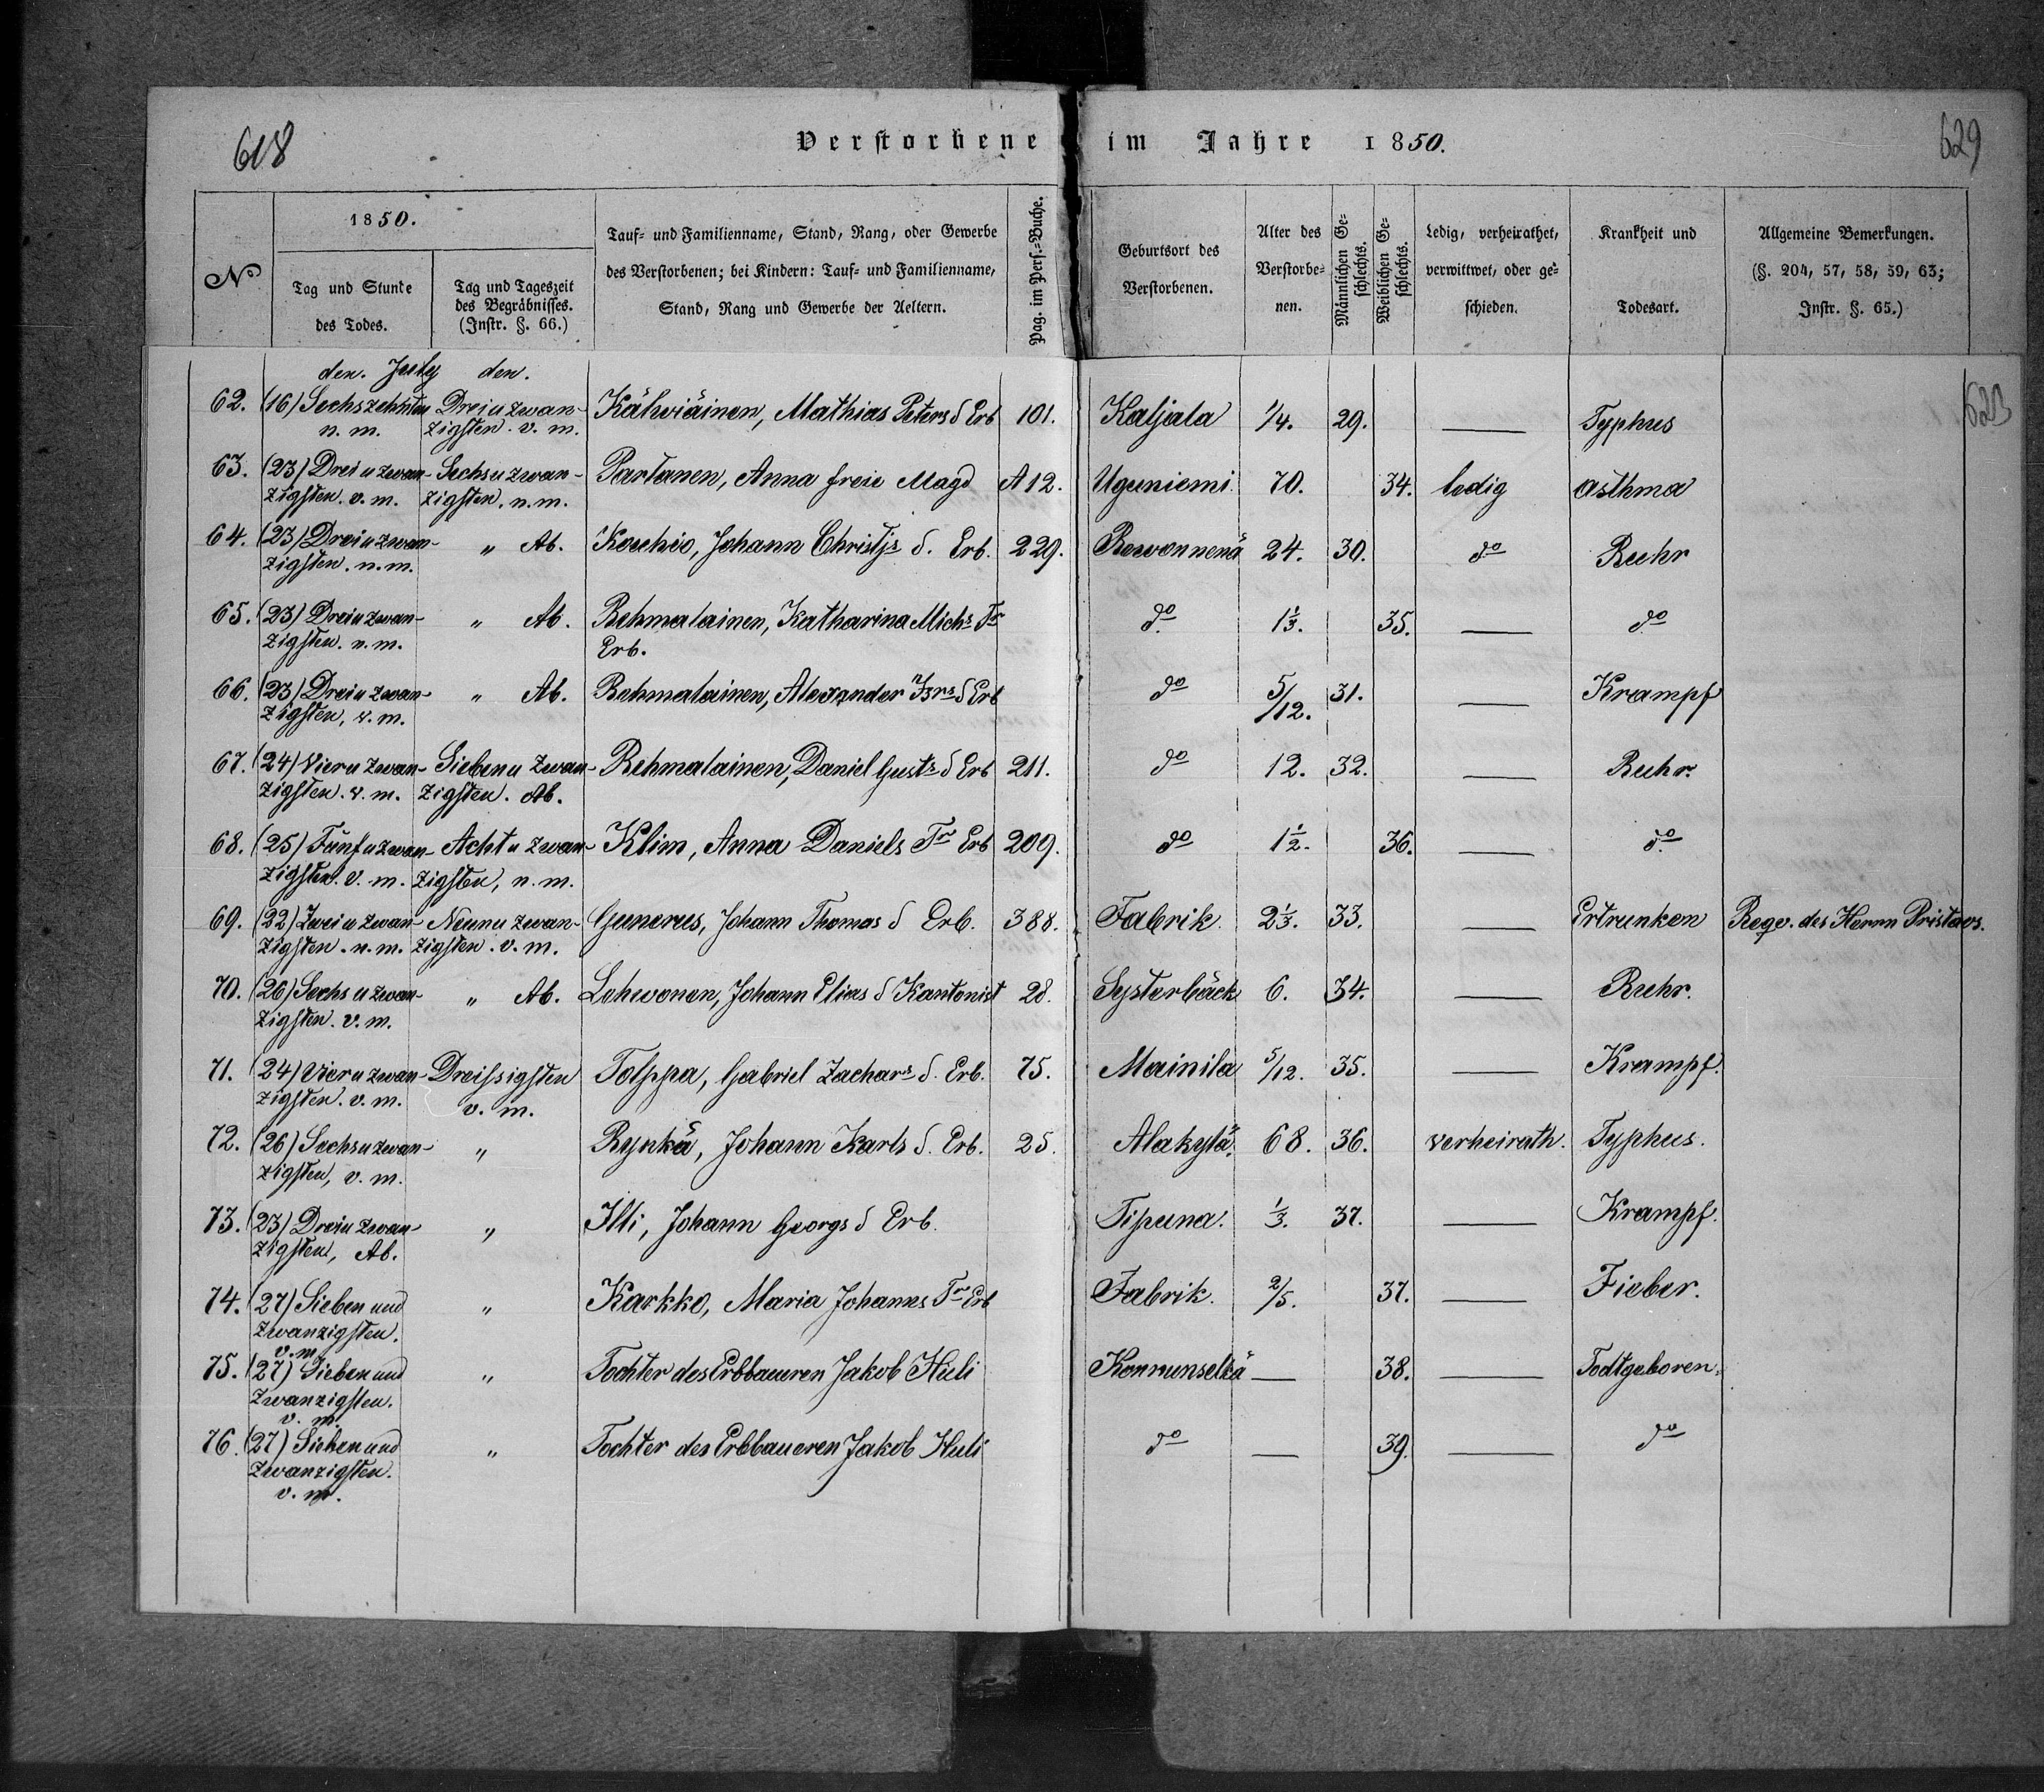 618
Verstorbene im Jahre 1850.
629
No
1850.
Tag und Stunde des Todes.
Tag und Tageszeit des Begräbnisses. (Instr. §. 66.)
Tauf- und Familienname, Stand, Rang, oder Gewerbe des Verstorbenen; bei Kindern: Tauf- und Familienname, Stand, Rang und Gewerbe der Aeltern.
Pag. im Pers.-Buche.
Geburtsort des Verstorbenen.
Alter des Verstorbenen.
Männlichen Geschlechts.
Weiblichen Geschlechts.
Ledig, verheirathet, verwittwet, oder geschieden.
Krankheit und Todesart.
Allgemeine Bemerkungen. (§. 204, 57, 58, 59, 63; Instr. §. 65.)
den. July den.
623
62. (16) Sechszehnten Dreiuzwan- Kähviäinen, Mathias Peters S Erb 101. Kaljala 1/4. 29. — Typhus
n. m. zigsten. v. m.
63. (23) Dreiuzwan- Sechsuzwan- Partanen, Anna freie Magd A12. Uguniemi. 70. 34. ledig asthma
zigsten. v. m. zigsten. n. m.
64. (23) Dreiuzwan- " Ab. Kouhio, Johann Christjs S. Erb. 229. 24. 30. do Ruhr
zigsten. n. m.
65. (23) Dreiuzwan- " Ab. Rehmalainen, Katharina Michs Tr do 1 1/3. 35. — do
zigsten. n. m. Erb.
66. (23) Dreiuzwan- " Ab. Rehmalainen, Alexander S Erb do 5/12. 31. — Krampf
zigsten, v. m.
67. (24) Vieruzwan- Siebenuzwan- Rehmalainen, Daniel Gusts S Erb 211. do 12. 32. — Ruhr.
zigsten. v. m. zigsten. Ab.
68. (25) Fünfuzwan- Achtuzwan- Klim, Anna Daniels Tr Erb 209. do 1 1/2. 36. — do
zigsten. v. m. zigsten, n. m.
69. (22) Zweiuzwan- Neunuzwan- Gunerus, Johann Thomas S Erb. 388. Fabrik. 2 1/3. 33. — Ertrunken Reqv. des Herrn Pristavs.
zigsten. n. m. zigsten. v. m.
70. (26) Sechsuzwan- " Ab. Lehvonen, Johann Elias S Kantonist 28. Systerbäck 6. 34. — Ruhr.
zigsten. v. m.
71. (24) Vieruzwan- Dreissigsten Tolppa, Gabriel Zachars S. Erb. 75. Mainila 5/12. 35. — Krampf.
zigsten. v. m. v. m.
72. (26) Sechsuzwan- " Rynkä, Johann Karls S. Erb. 25. Alakylä. 68. 36. verheirath. Typhus.
zigsten, v. m.
73. (23) Dreiuzwan- " Illi, Johann Georgs S Erb. Tipuna. 1/3. 37. — Krampf.
zigsten, Ab.
74. (27) Sieben und " Karkko, Maria Johanns Tr Erb Fabrik. 2/5. 37. — Fieber.
zwanzigsten.
v. m
75. (27) Sieben und " Tochter des Erbbaueren Jakob Huli Konnunselkä — 38. — Todtgeboren.
zwanzigsten.
v. m
76. (27) Sieben und " Tochter des Erbbaueren Jakob Huli do — 39. — do
zwanzigsten.
v. m.